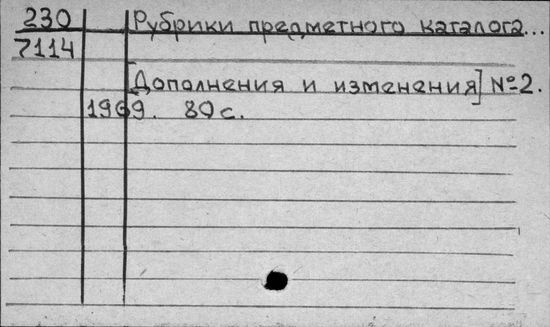 230 Рубрики предметного каталога...
7114
[Дополнения и изменения] №2.
1969. 80 с.